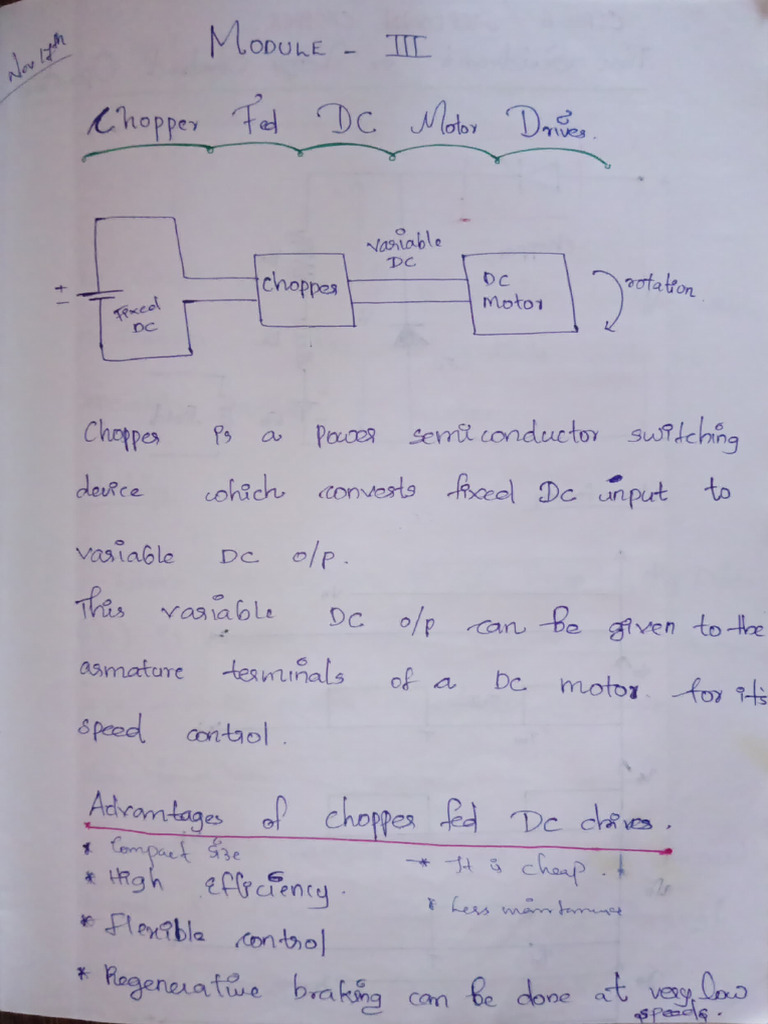 Nov 17th
MODULE - III
Chopper Fed DC Motor Drives.
variable
DC
+
-
Fixed
DC
chopper
DC
Motor
rotation
Chopper is a power semiconductor switching
device which converts fixed DC input to
variable DC o/p.
This variable DC o/p can be given to the
armature terminals of a DC motor for its
speed control.
Advantages of chopper fed DC drives.
* Compact size
* It is cheap.
* High efficiency.
* Less maintanance
* Flexible control
* Regenerative braking can be done at very low
speeds.